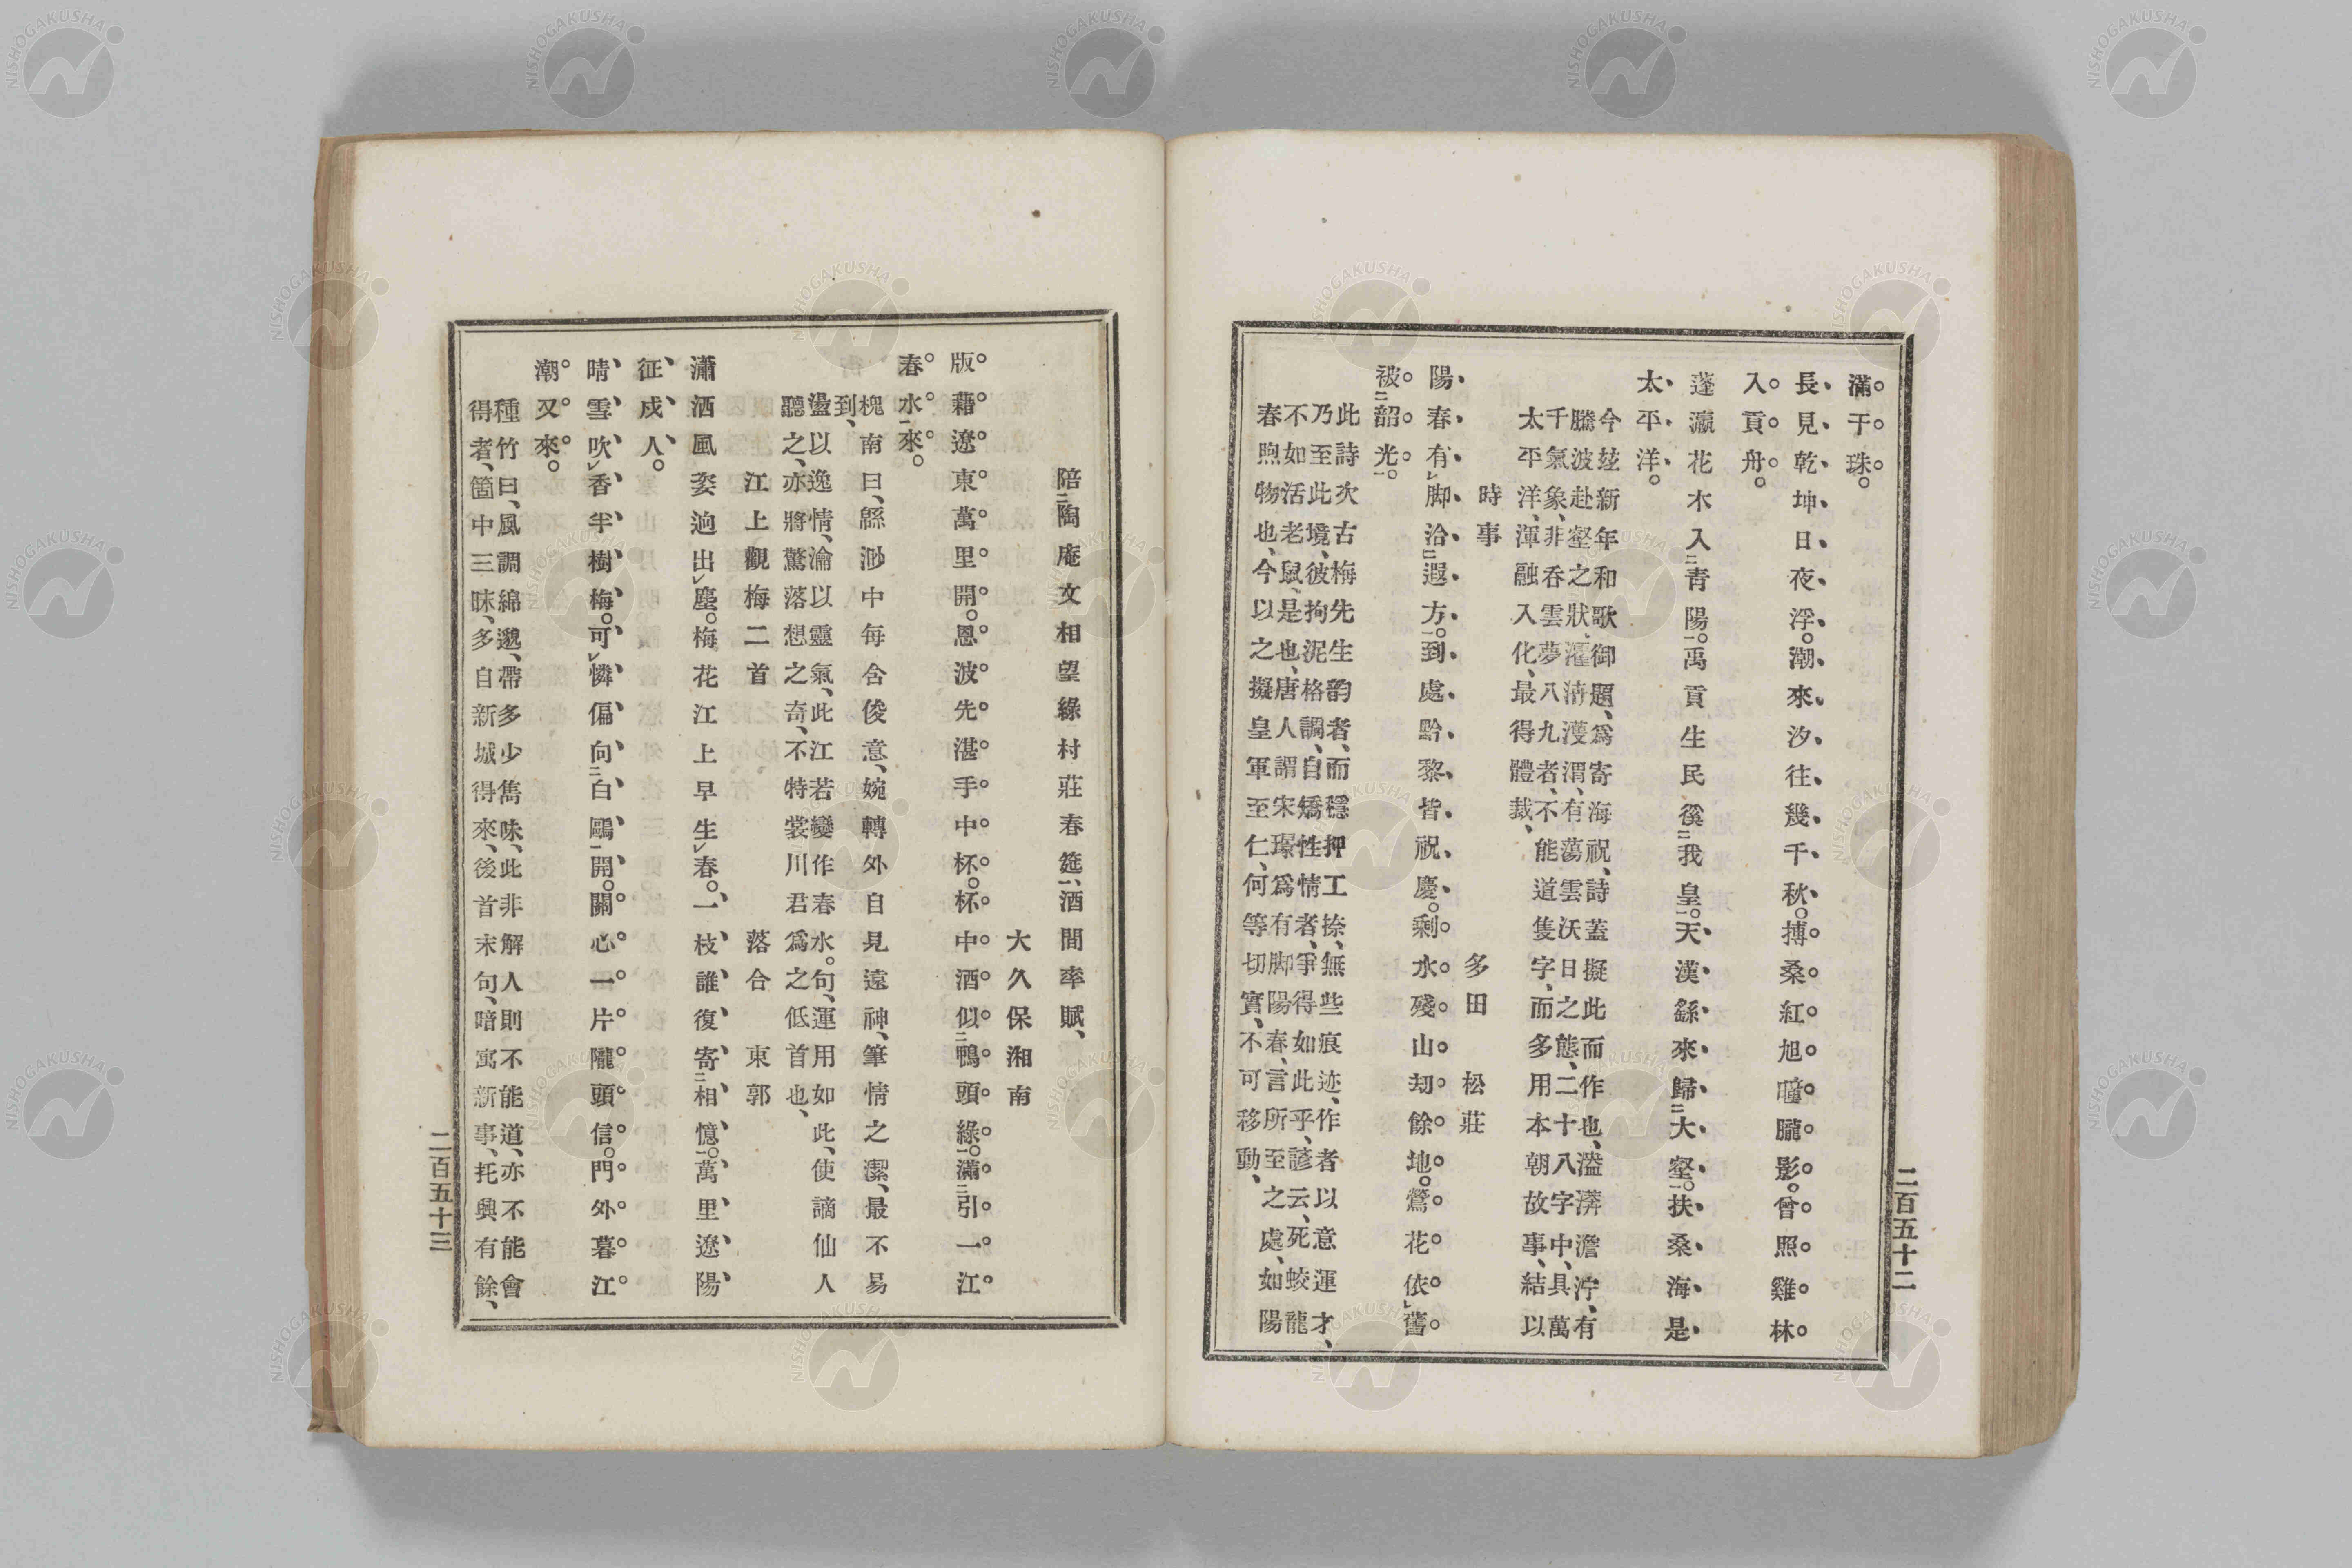 滿干珠。
長見乾坤日夜浮。潮來汐往幾千秋。搏桑紅旭曈曨影。曾照雞林
入貢舟。
蓬瀛花木入青陽。禹貢生民徯我皇。天漢繇來歸大壑。扶桑海是
太平洋。
今玆新年和歌御題、爲寄海祝、詩蓋擬此而作也、溢漭澹泞、有
騰波赴壑之狀、濯淸濩渭、有蕩雲沃日之態、二十八字中、具萬
千氣象、非呑雲夢八九者、不能道隻字、而多用本朝故事、結以
太平洋、渾融入化、最得體裁、
時事 多田松莊
陽春有脚洽遐方。到處黔黎皆祝慶。剩水殘山刧餘地。鶯花依舊
被韶光。
此詩次古梅先生韵者、而穩押工捺、無些痕迹、作者以意運才、
乃至此境、彼拘泥格調、自矯性情者、爭得如此乎、諺云、死蛟龍
不如活老鼠、是也、唐人謂宋璟爲有脚陽春、言所至之處、如陽
春煦物也、今以之擬皇軍至仁、何等切實、不可移動、
二百五十二
陪陶庵文相望綠村莊春筵、酒間率賦、
大久保湘南
版藉遼東萬里開。恩波先湛手中杯。杯中酒似鴨頭綠。滿引一江
春水來。
槐南曰、緜渺中每含俊意、婉轉外自見遠神、筆情之潔、最不易
到、
盪以逸情、瀹以靈氣、此江若變作春水。句、運用如此、使謫仙人
聽之、亦將驚落想之奇、不特裳川君爲之低首也、
江上觀梅二首 落合東郭
瀟洒風姿迥出塵。梅花江上早生春。一枝誰復寄相憶。萬里遼陽
征戍人。
晴雪吹香半樹梅。可憐偏向白鷗開。關心一片隴頭信。門外暮江
潮又來。
種竹曰、風調綿邈、帶多少雋味、此非解人則不能道、亦不能會
得者、箇中三昧、多自新城得來、後首末句、暗寓新事、托興有餘、
二百五十三